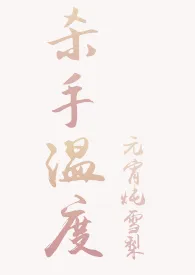 杀手温度
元宵炖雪梨